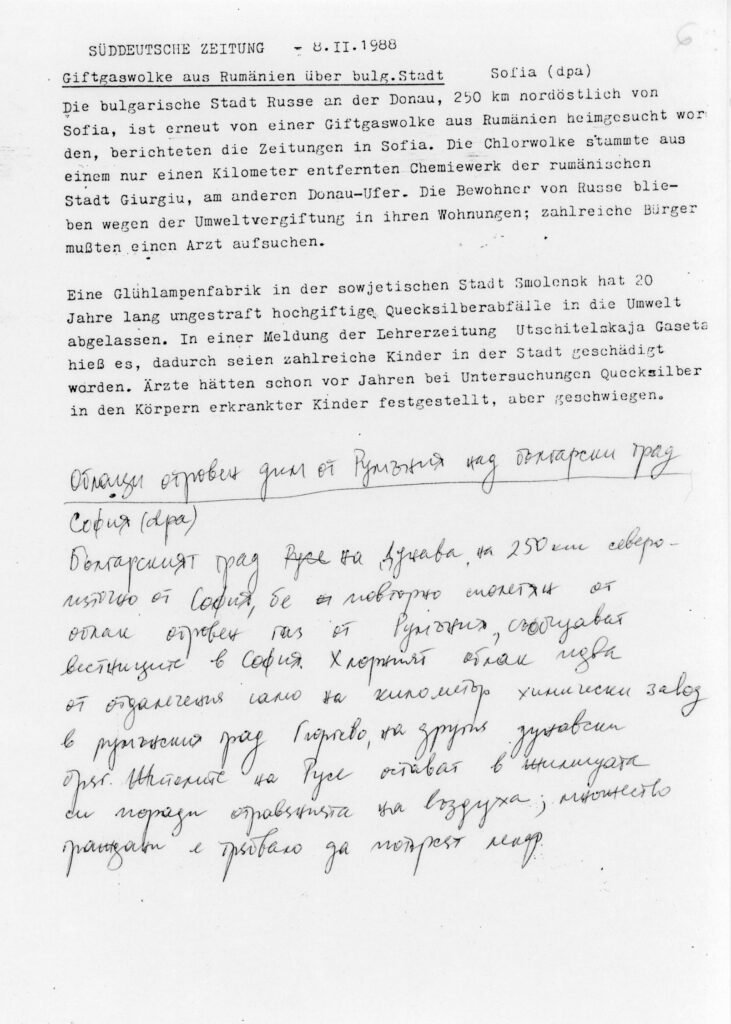 6
SÜDDEUTSCHE ZEITUNG - 8.II.1988
Giftgaswolke aus Rumänien über bulg.Stadt Sofia (dpa)
Die bulgarische Stadt Russe an der Donau, 250 km nordöstlich von
Sofia, ist erneut von einer Giftgaswolke aus Rumänien heimgesucht wor
den, berichteten die Zeitungen in Sofia. Die Chlorwolke stammte aus
einem nur einen Kilometer entfernten Chemiewerk der rumänischen
Stadt Giurgiu, am anderen Donau-Ufer. Die Bewohner von Russe blie-
ben wegen der Umweltvergiftung in ihren Wohnungen; zahlreiche Bürger
mußten einen Arzt aufsuchen.
Eine Glühlampenfabrik in der sowjetischen Stadt Smolensk hat 20
Jahre lang ungestraft hochgiftige Quecksilberabfälle in die Umwelt
abgelassen. In einer Meldung der Lehrerzeitung Utschitelskaja Gaseta
hieß es, dadurch seien zahlreiche Kinder in der Stadt geschädigt
worden. Ärzte hätten schon vor Jahren bei Untersuchungen Quecksilber
in den Körpern erkrankter Kinder festgestellt, aber geschwiegen.
Облаци отровен дим от Румъния над български град
София (dpa)
Българският град Русе на Дунава, на 250 km северо-
източно от София, бе повторно сполетян от
облак отровен газ от Румъния, съобщават
вестниците в София. Хлорният облак идва
от отдалечения само на километър химически завод
в румънския град Гюргево, на другия дунавски
бряг. Жителите на Русе остават в жилищата
си поради отравянията на въздуха; множество
граждани е трябвало да потърсят лекар.